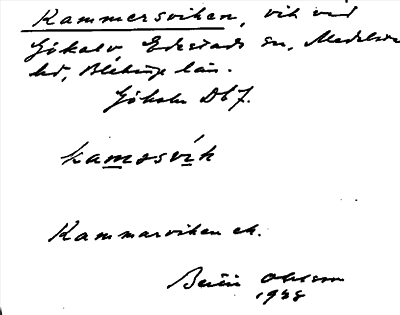 Kammersviken, vik vid
Gökalv Edestads sn, Medelsta
hd, Blekinge län.
Gökalv Db7.
kamǝsvik
Kammarviken ek.
Bertil Ohlsson
1938